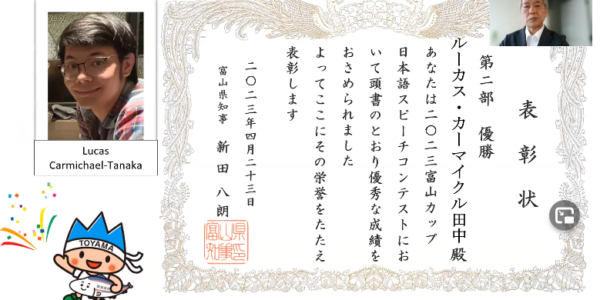 表彰状
第二部 優勝
ルーカス・カーマイクル田中 殿
あなたは二〇二三富山カップ
日本語スピーチコンテストにお
いて頭書のとおり優秀な成績を
おさめられました
よってここにその栄誉をたたえ
表彰します
二〇二三年四月二十三日
富山県知事 新田 八朗
富山県知事印
Lucas
Carmichael-Tanaka
TOYAMA